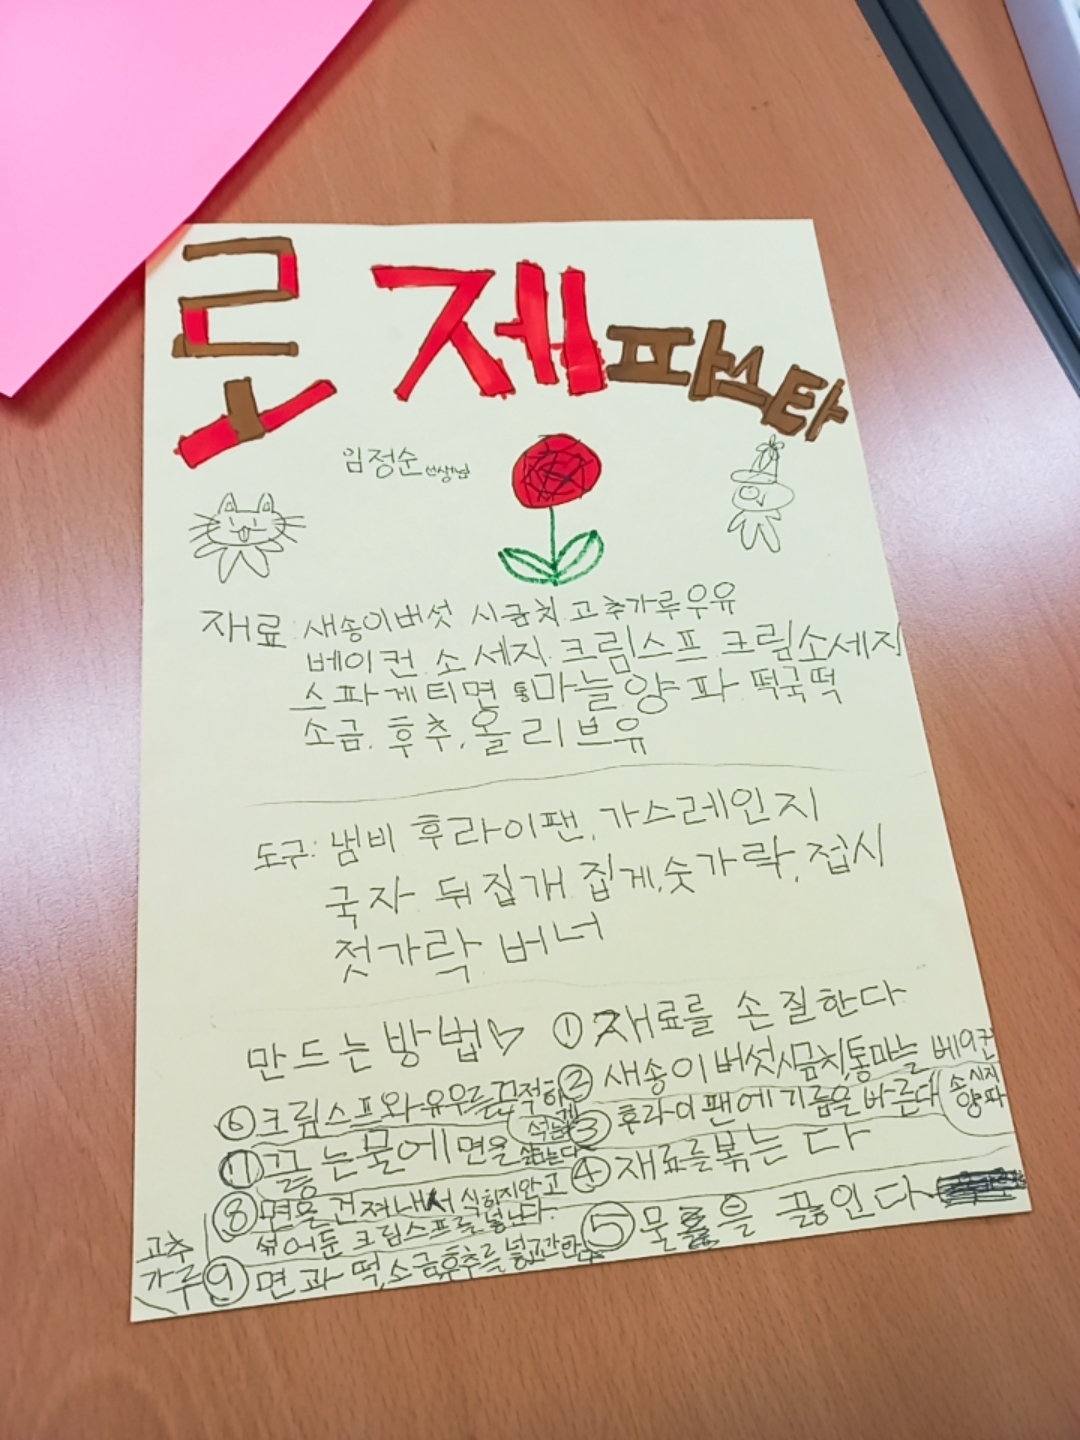 로제파스타
임정순 선생님
재료: 새송이버섯 시금치 고추가루 우유
베이컨. 소세지. 크림스프 크림소세지
스파게티면 통마늘 양파 떡국떡
소금. 후추, 올리브유
도구: 냄비 후라이팬, 가스레인지
국자 뒤집개 집게, 숫가락, 접시
젓가락 버너
만드는방법♡ ① 재료를 손질한다
② 새송이버섯 시금치, 통마늘 베이컨
양파
③ 후라이팬에 기름을 바른다
④ 재료를 볶는다
⑤ 물을 끓인다
⑥ 크림스프와 유우를 끈적하게
⑦ 끓는물에 면을
⑧ 면을 건져내서 식히지안고
섞어둔 크림스프를 넣는다
⑨ 면과 떡, 소금후추를 넣고간한다
고추
가루